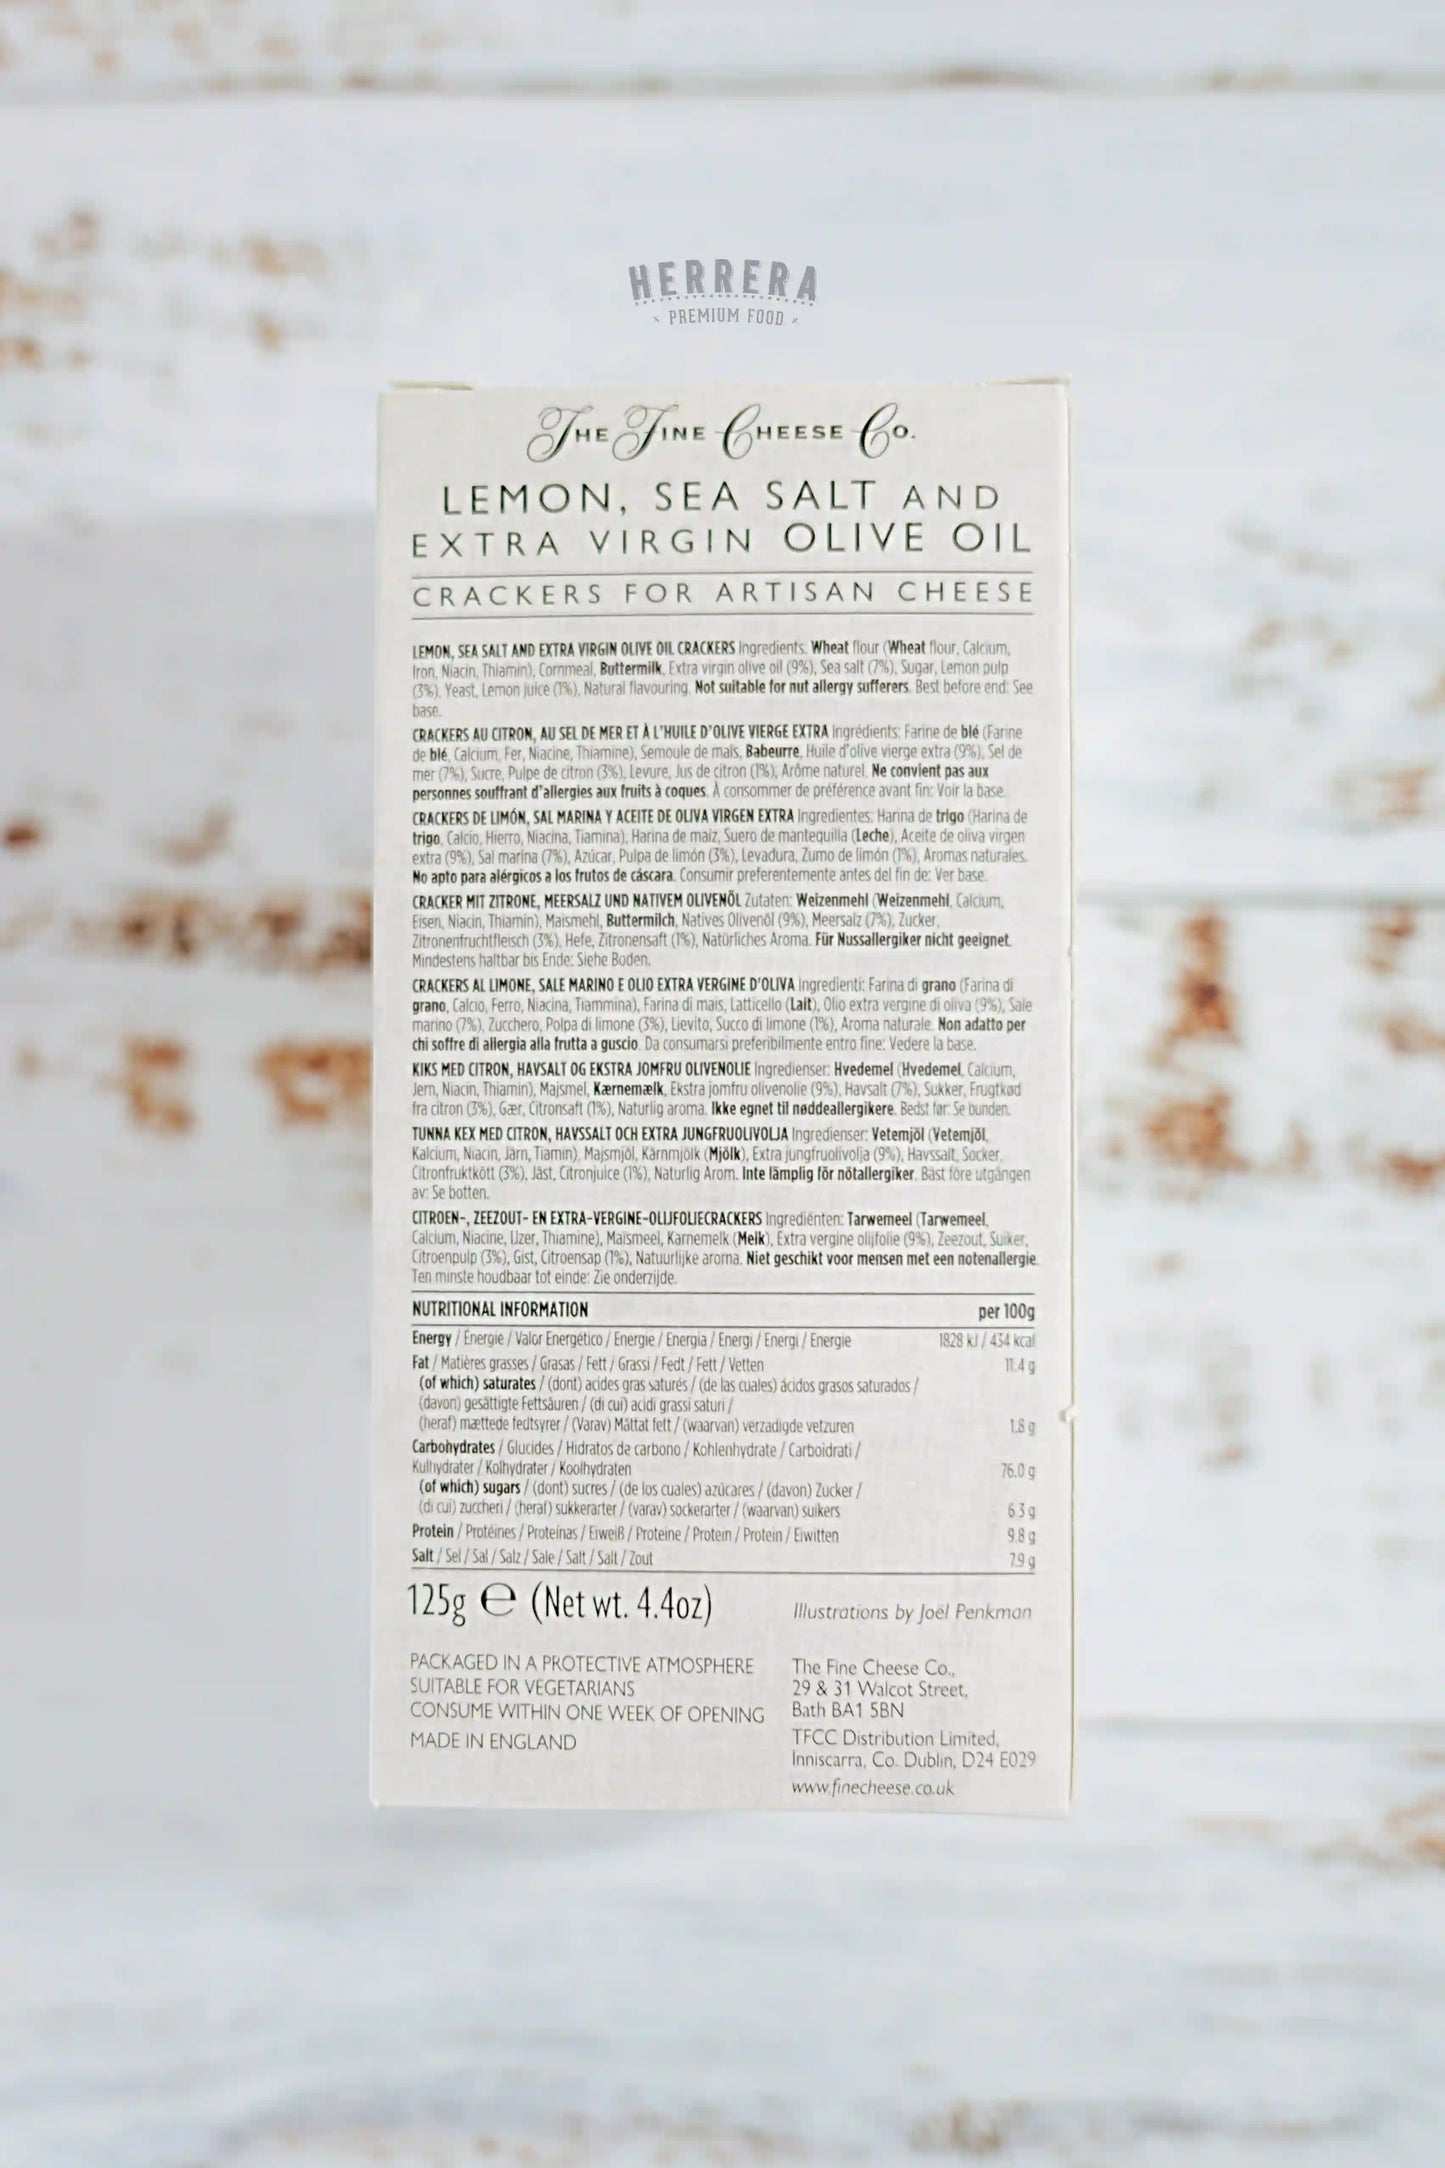 HERRERA
× PREMIUM FOOD ×
THE FINE CHEESE CO.
LEMON, SEA SALT AND
EXTRA VIRGIN OLIVE OIL
CRACKERS FOR ARTISAN CHEESE
LEMON, SEA SALT AND EXTRA VIRGIN OLIVE OIL CRACKERS Ingredients: Wheat flour (Wheat flour, Calcium,
Iron, Niacin, Thiamin), Cornmeal, Buttermilk, Extra virgin olive oil (9%), Sea salt (7%), Sugar, Lemon pulp
(3%), Yeast, Lemon juice (1%), Natural flavouring. Not suitable for nut allergy sufferers. Best before end: See
base.
CRACKERS AU CITRON, AU SEL DE MER ET À L'HUILE D'OLIVE VIERGE EXTRA Ingrédients: Farine de blé (Farine
de blé, Calcium, Fer, Niacine, Thiamine), Semoule de maïs, Babeurre, Huile d'olive vierge extra (9%), Sel de
mer (7%), Sucre, Pulpe de citron (3%), Levure, Jus de citron (1%), Arôme naturel. Ne convient pas aux
personnes souffrant d'allergies aux fruits à coques. À consommer de préférence avant fin: Voir la base.
CRACKERS DE LIMÓN, SAL MARINA Y ACEITE DE OLIVA VIRGEN EXTRA Ingredientes: Harina de trigo (Harina de
trigo, Calcio, Hierro, Niacina, Tiamina), Harina de maíz, Suero de mantequilla (Leche), Aceite de oliva virgen
extra (9%), Sal marina (7%), Azúcar, Pulpa de limón (3%), Levadura, Zumo de limón (1%), Aromas naturales.
No apto para alérgicos a los frutos de cáscara. Consumir preferentemente antes del fin de: Ver base.
CRACKER MIT ZITRONE, MEERSALZ UND NATIVEM OLIVENÖL Zutaten: Weizenmehl (Weizenmehl, Calcium,
Eisen, Niacin, Thiamin), Maismehl, Buttermilch, Natives Olivenöl (9%), Meersalz (7%), Zucker,
Zitronenfruchtfleisch (3%), Hefe, Zitronensaft (1%), Natürliches Aroma. Für Nussallergiker nicht geeignet.
Mindestens haltbar bis Ende: Siehe Boden.
CRACKERS AL LIMONE, SALE MARINO E OLIO EXTRA VERGINE D'OLIVA Ingredienti: Farina di grano (Farina di
grano, Calcio, Ferro, Niacina, Tiammina), Farina di mais, Latticello (Lait), Olio extra vergine di oliva (9%), Sale
marino (7%), Zucchero, Polpa di limone (3%), Lievito, Succo di limone (1%), Aroma naturale. Non adatto per
chi soffre di allergia alla frutta a guscio. Da consumarsi preferibilmente entro fine: Vedere la base.
KIKS MED CITRON, HAVSALT OG EKSTRA JOMFRU OLIVENOLIE Ingredienser: Hvedemel (Hvedemel, Calcium,
Jern, Niacin, Thiamin), Majsmel, Kærnemælk, Ekstra jomfru olivenolie (9%), Havsalt (7%), Sukker, Frugtkød
fra citron (3%), Gær, Citronsaft (1%), Naturlig aroma. Ikke egnet til nøddeallergikere. Bedst før: Se bunden.
TUNNA KEX MED CITRON, HAVSSALT OCH EXTRA JUNGFRUOLIVOLJA Ingredienser: Vetemjöl (Vetemjöl,
Kalcium, Niacin, Järn, Tiamin), Majsmjöl, Kärnmjölk (Mjölk), Extra jungfruolivolja (9%), Havssalt, Socker,
Citronfruktkött (3%), Jäst, Citronjuice (1%), Naturlig Arom. Inte lämplig för nötallergiker. Bäst före utgången
av: Se botten.
CITROEN-, ZEEZOUT- EN EXTRA-VERGINE-OLIJFOLIECRACKERS Ingrediënten: Tarwemeel (Tarwemeel,
Calcium, Niacine, IJzer, Thiamine), Maïsmeel, Karnemelk (Melk), Extra vergine olijfolie (9%), Zeezout, Suiker,
Citroenpulp (3%), Gist, Citroensap (1%), Natuurlijke aroma. Niet geschikt voor mensen met een notenallergie.
Ten minste houdbaar tot einde: Zie onderzijde.
NUTRITIONAL INFORMATION per 100g
Energy / Énergie / Valor Energético / Energie / Energia / Energi / Energi / Energie 1828 kJ / 434 kcal
Fat / Matières grasses / Grasas / Fett / Grassi / Fedt / Fett / Vetten 11.4 g
(of which) saturates / (dont) acides gras saturés / (de las cuales) ácidos grasos saturados /
(davon) gesättigte Fettsäuren / (di cui) acidi grassi saturi /
(heraf) mættede fedtsyrer / (Varav) Mättat fett / (waarvan) verzadigde vetzuren 1.8 g
Carbohydrates / Glucides / Hidratos de carbono / Kohlenhydrate / Carboidrati /
Kulhydrater / Kolhydrater / Koolhydraten 76.0 g
(of which) sugars / (dont) sucres / (de los cuales) azúcares / (davon) Zucker /
(di cui) zuccheri / (heraf) sukkerarter / (varav) sockerarter / (waarvan) suikers 6.3 g
Protein / Protéines / Proteínas / Eiweiß / Proteine / Protein / Protein / Eiwitten 9.8 g
Salt / Sel / Sal / Salz / Sale / Salt / Salt / Zout 7.9 g
125g ℮ (Net wt. 4.4oz)
Illustrations by Joël Penkman
PACKAGED IN A PROTECTIVE ATMOSPHERE
SUITABLE FOR VEGETARIANS
CONSUME WITHIN ONE WEEK OF OPENING
MADE IN ENGLAND
The Fine Cheese Co.,
29 & 31 Walcot Street,
Bath BA1 5BN
TFCC Distribution Limited,
Inniscarra, Co. Dublin, D24 E029
www.finecheese.co.uk